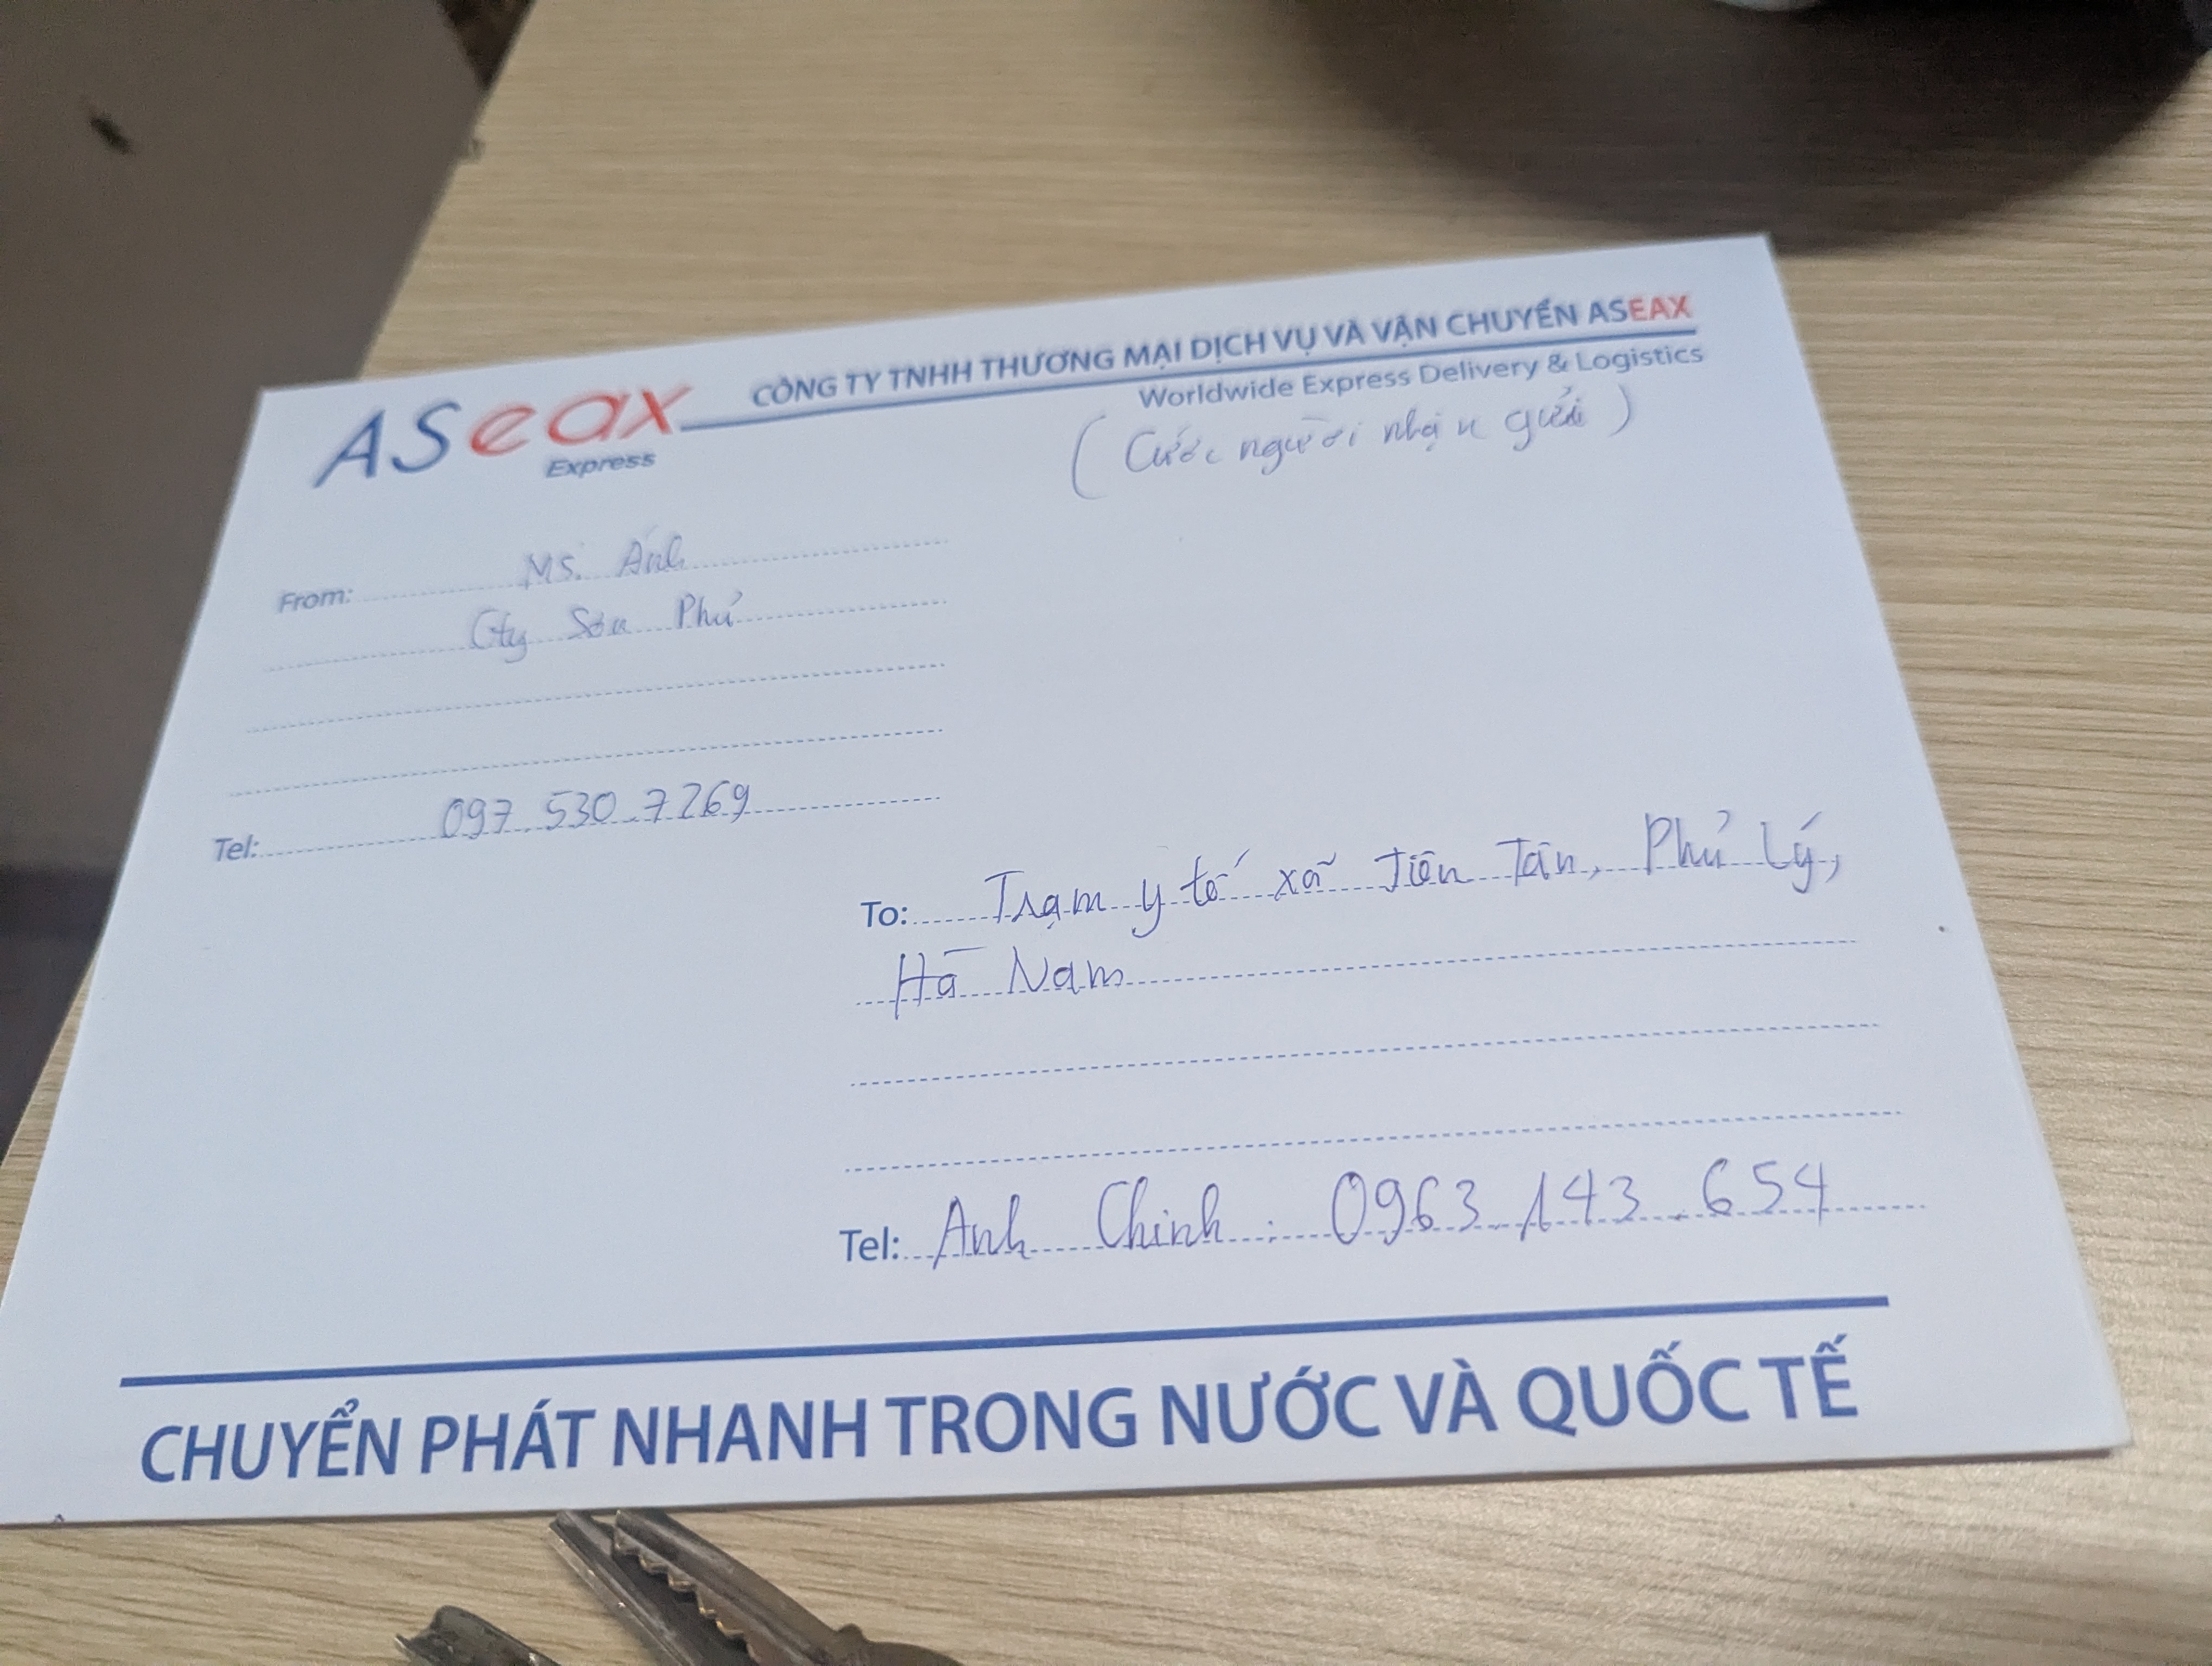 ASeax
Express
CÔNG TY TNHH THƯƠNG MẠI DỊCH VỤ VÀ VẬN CHUYỂN ASEAX
Worldwide Express Delivery & Logistics
(Cước người nhận gửi)
From: Ms. Ánh
Cty Sơn Phú
Tel: 097.530.7269
To: Trạm y tế xã Tiên Tân, Phủ Lý,
Hà Nam
Tel: Anh Chinh: 0963.143.654
CHUYỂN PHÁT NHANH TRONG NƯỚC VÀ QUỐC TẾ